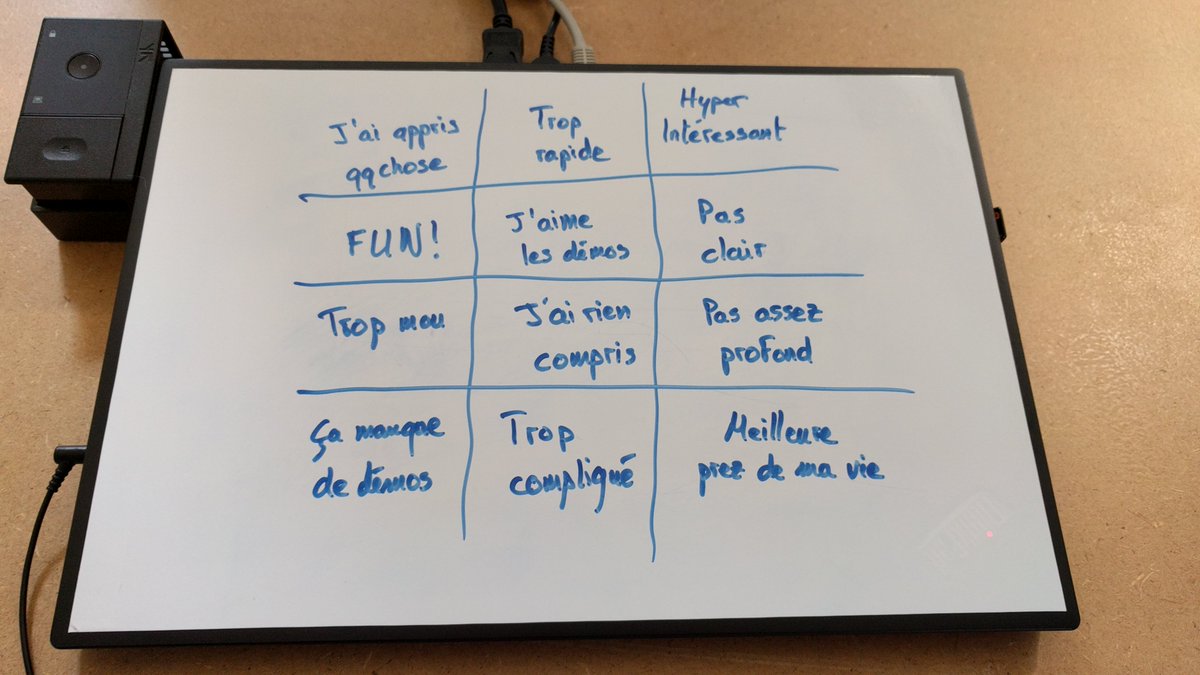 J'ai appris
qqchose
Trop
rapide
Hyper
Intéressant
FUN!
J'aime
les démos
Pas
clair
Trop mou
J'ai rien
compris
Pas assez
profond
Ça manque
de démos
Trop
compliqué
Meilleure
prez de ma vie